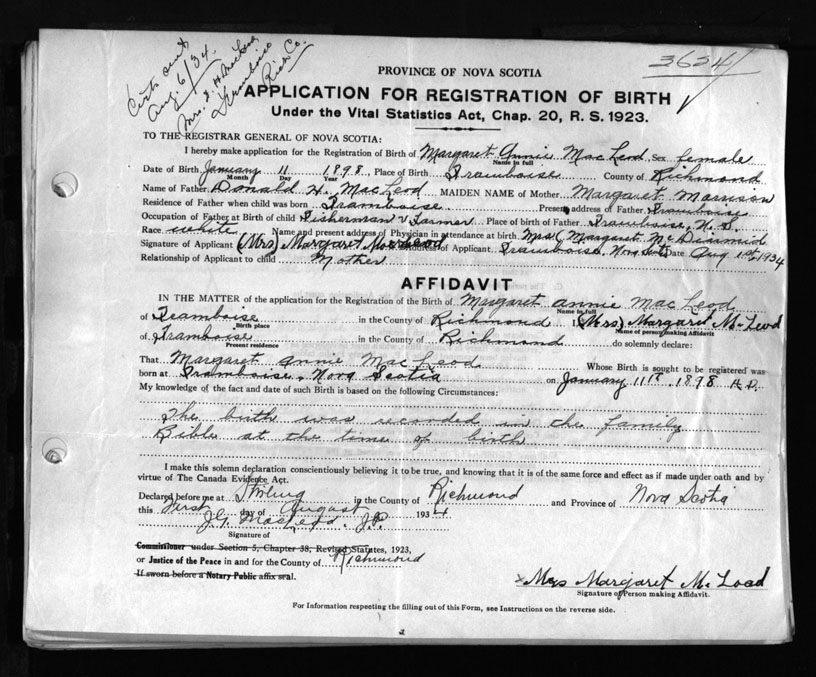 Certs sent
Aug. 6/34.
Mrs. H. MacLeod
Framboise
Rich Co.
3624
PROVINCE OF NOVA SCOTIA
APPLICATION FOR REGISTRATION OF BIRTH
Under the Vital Statistics Act, Chap. 20, R. S. 1923.
TO THE REGISTRAR GENERAL OF NOVA SCOTIA:
I hereby make application for the Registration of Birth of Margaret Annie MacLeod Sex female
Name in full
Date of Birth January 11 1898, Place of Birth Framboise County of Richmond
Month Day Year
Name of Father Donald H. MacLeod MAIDEN NAME of Mother Margaret Morrison
Residence of Father when child was born Framboise Present address of Father Framboise
Occupation of Father at Birth of child Fisherman & Farmer Place of birth of Father Framboise, N.S.
Race white Name and present address of Physician in attendance at birth Mrs. Margaret McDiarmid
Signature of Applicant (Mrs) Margaret MacLeod Address of Applicant Framboise, Nova Scotia Date Aug 1st, 1934
Relationship of Applicant to child Mother
AFFIDAVIT
IN THE MATTER of the application for the Registration of the Birth of Margaret Annie MacLeod
Name in full
of Framboise in the County of Richmond I, (Mrs) Margaret McLeod
Birth place Name of person making Affidavit
of Framboise in the County of Richmond do solemnly declare:
Present residence
That Margaret Annie MacLeod Whose Birth is sought to be registered was
born at Framboise, Nova Scotia on January 11th 1898 A.D.
My knowledge of the fact and date of such Birth is based on the following Circumstances:
The birth was recorded in the family
Bible at the time of birth
I make this solemn declaration conscientiously believing it to be true, and knowing that it is of the same force and effect as if made under oath and by
virtue of The Canada Evidence Act.
Declared before me at Stirling in the County of Richmond and Province of Nova Scotia
this First day of August 1934
J.G. MacLeod. J.P.
Signature of
Commissioner under Section 5, Chapter 38, Revised Statutes, 1923,
or Justice of the Peace in and for the County of Richmond
If sworn before a Notary Public affix seal.
x Mrs Margaret McLoad
Signature of Person making Affidavit.
For Information respecting the filling out of this Form, see Instructions on the reverse side.